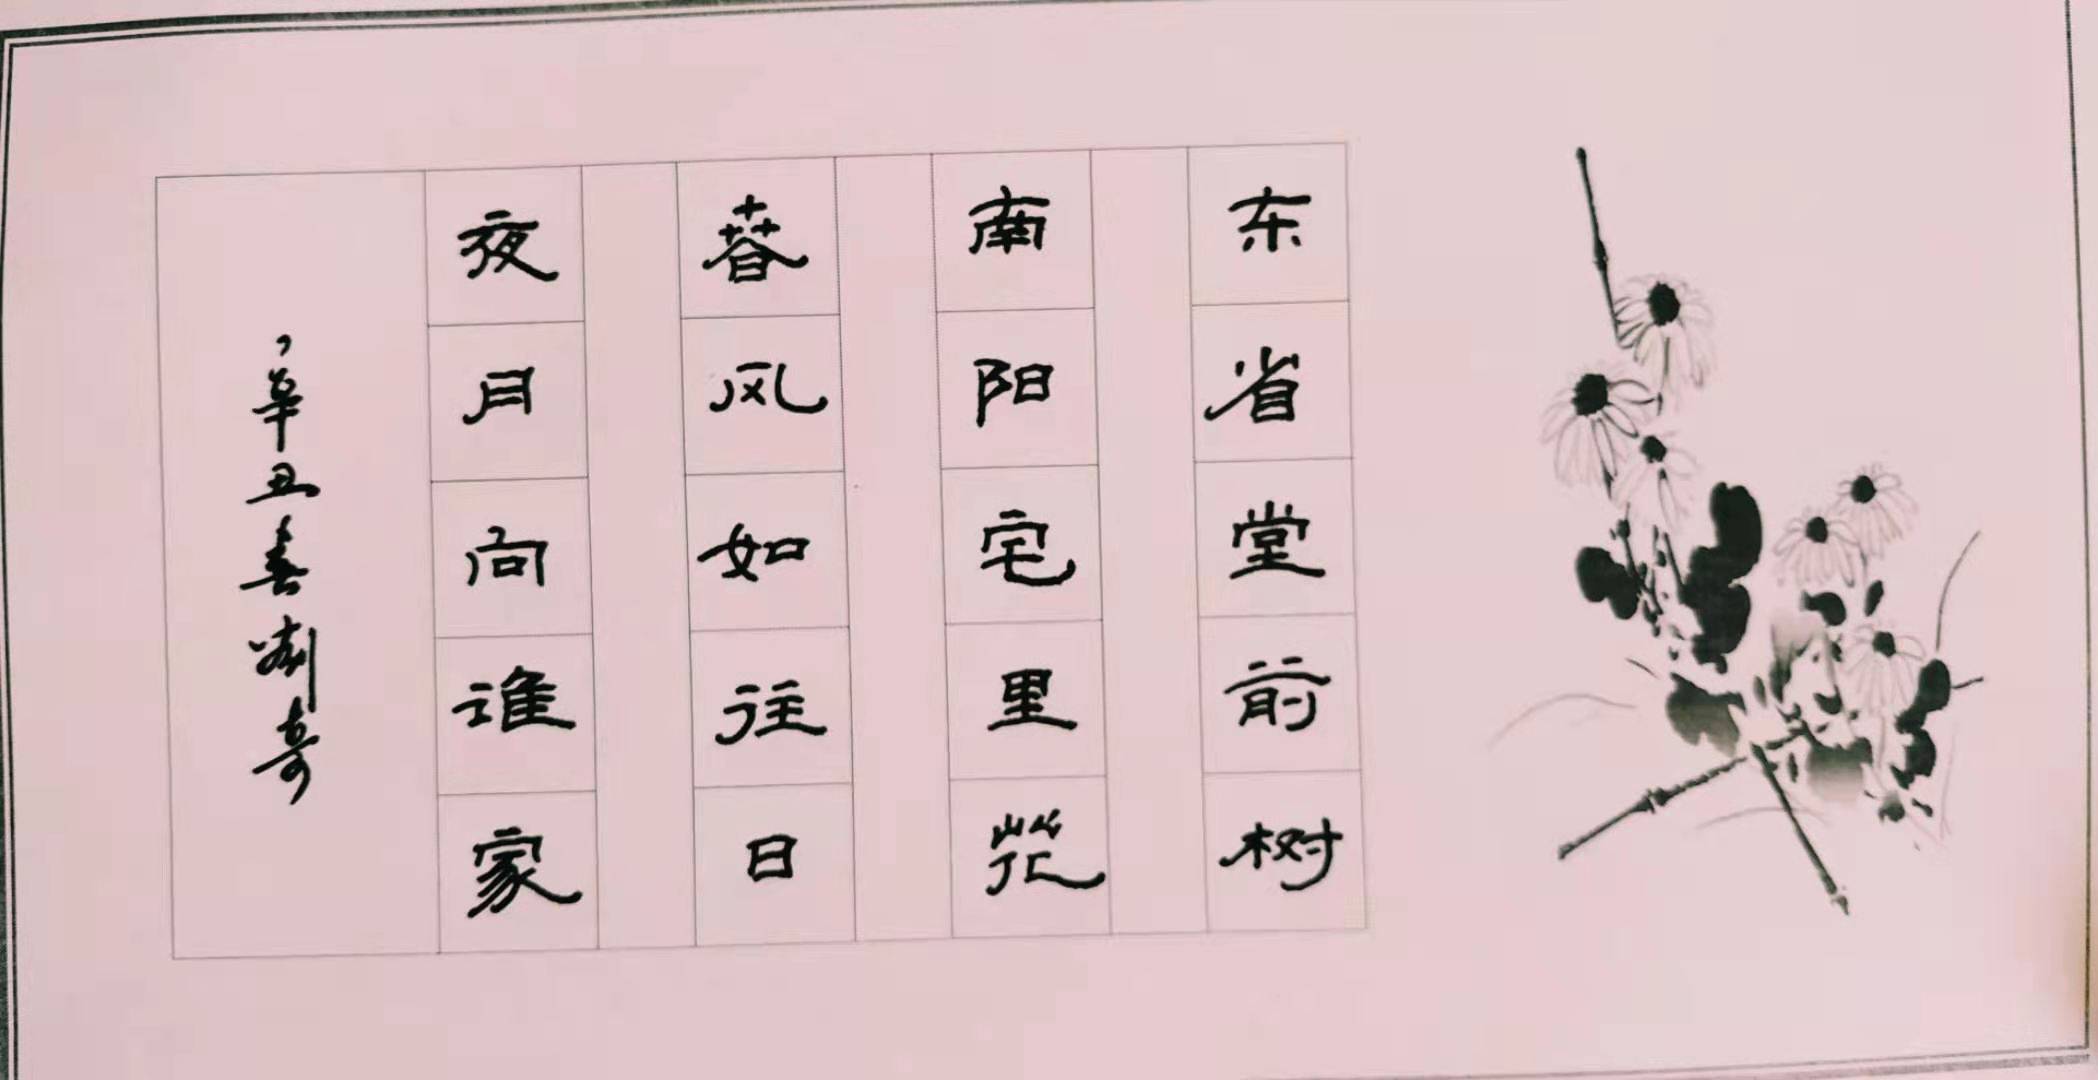 东省堂前树
南阳宅里花
春风如往日
夜月向谁家
辛丑春刘奇